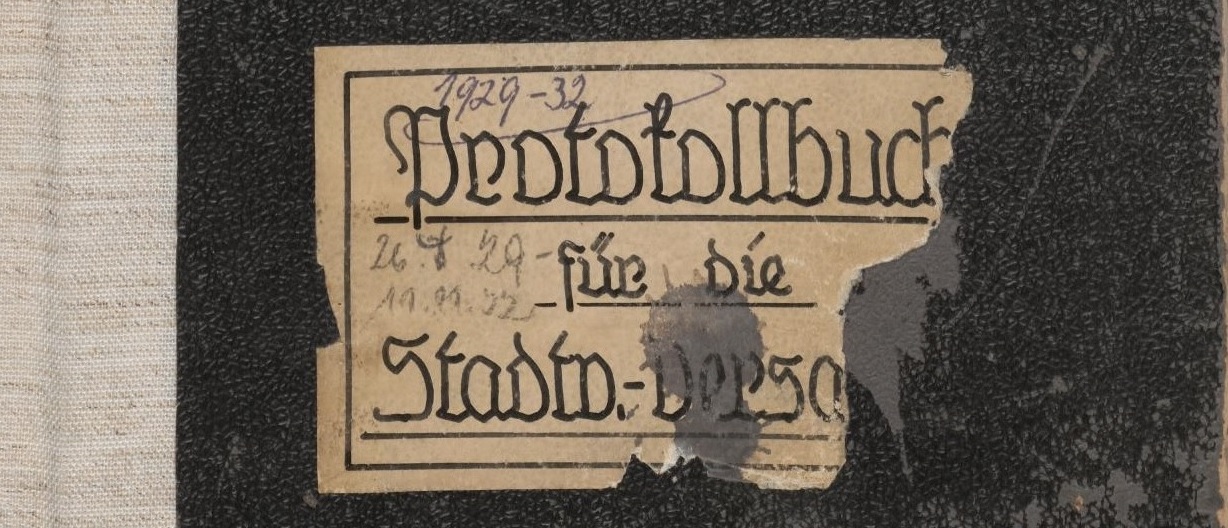 1929-32
Protokollbuch
26. 29-
für die
11.11.32
Stadtv.-Versa